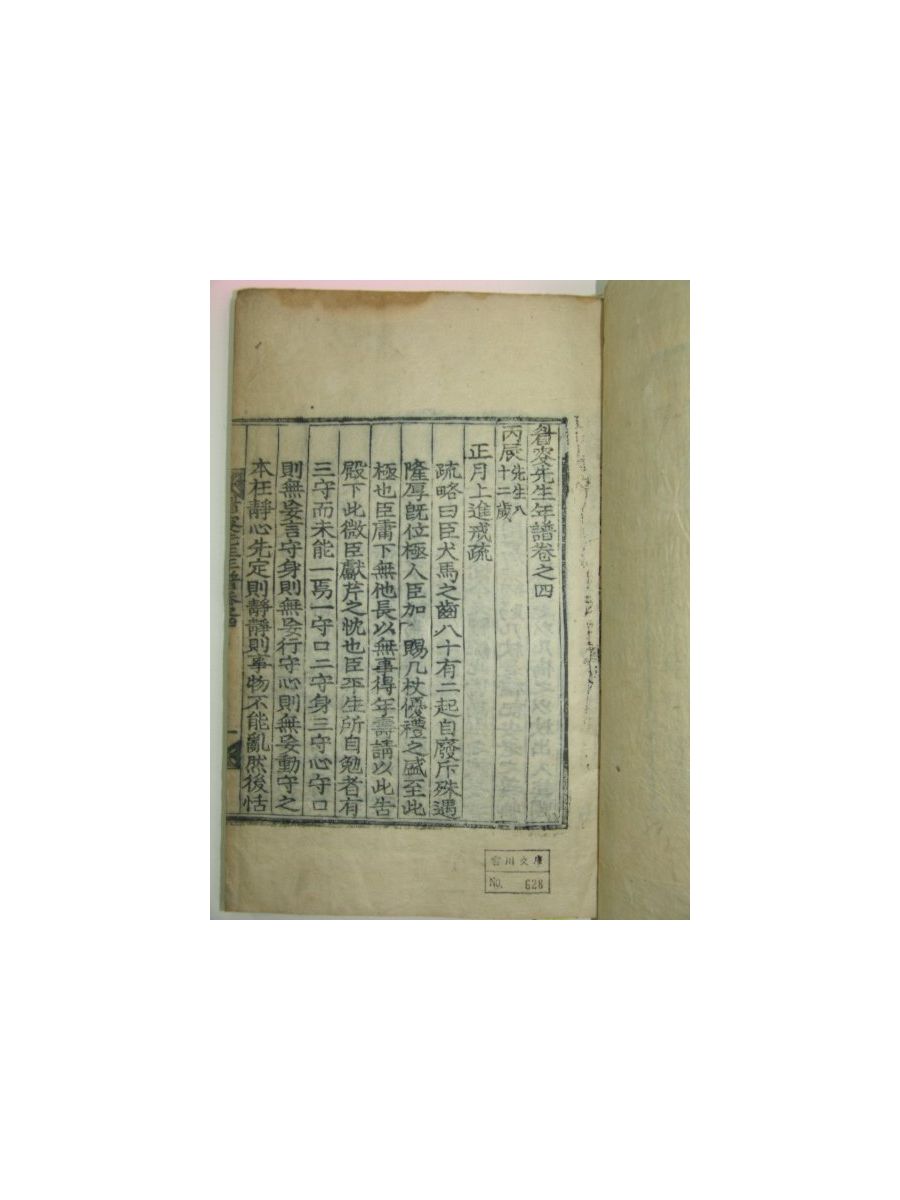 眉叟先生年譜卷之四
丙辰先生八十二歲
正月上進戒疏
疏略曰臣犬馬之齒八十有二起自廢斥殊遇
隆厚旣位極人臣加賜几杖優禮之盛至此
極也臣庸下無他長以無事得年壽請以此告
殿下此微臣獻芹之忱也臣平生所自勉者有
三守而未能一焉一守口二守身三守心守口
則無妄言守身則無妄行守心則無妄動守之
本在靜心先定則靜靜則事物不能亂然後恬
川文庫
No. 628